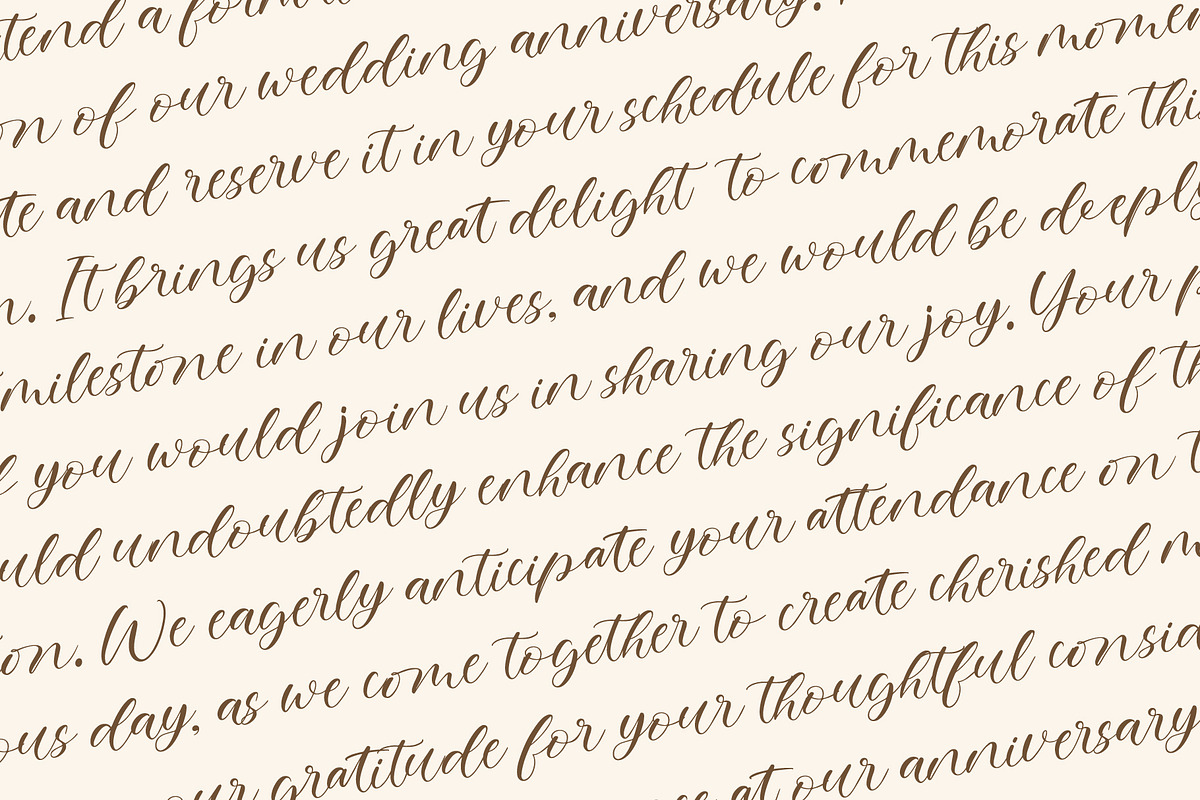 tend a formal
on of our wedding anniversary.
te and reserve it in your schedule for this momen
n. It brings us great delight to commemorate this
milestone in our lives, and we would be deeply
f you would join us in sharing our joy. Your p
uld undoubtedly enhance the significance of th
ion. We eagerly anticipate your attendance on t
ous day, as we come together to create cherished m
our gratitude for your thoughtful consid
at our anniversary